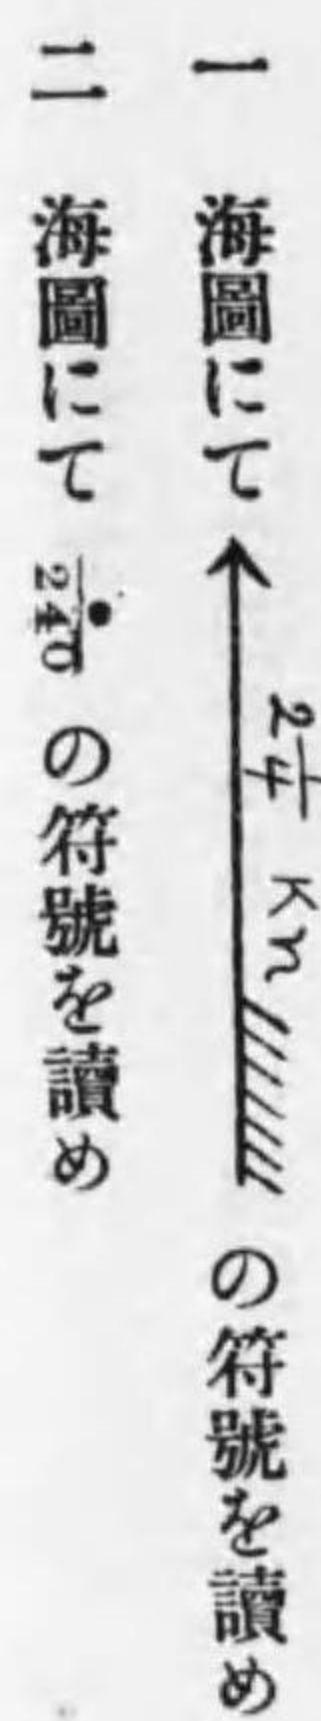 一 海圖にて 2 1/4 Kn の符號を讀め
二 海圖にて 240 の符號を讀め